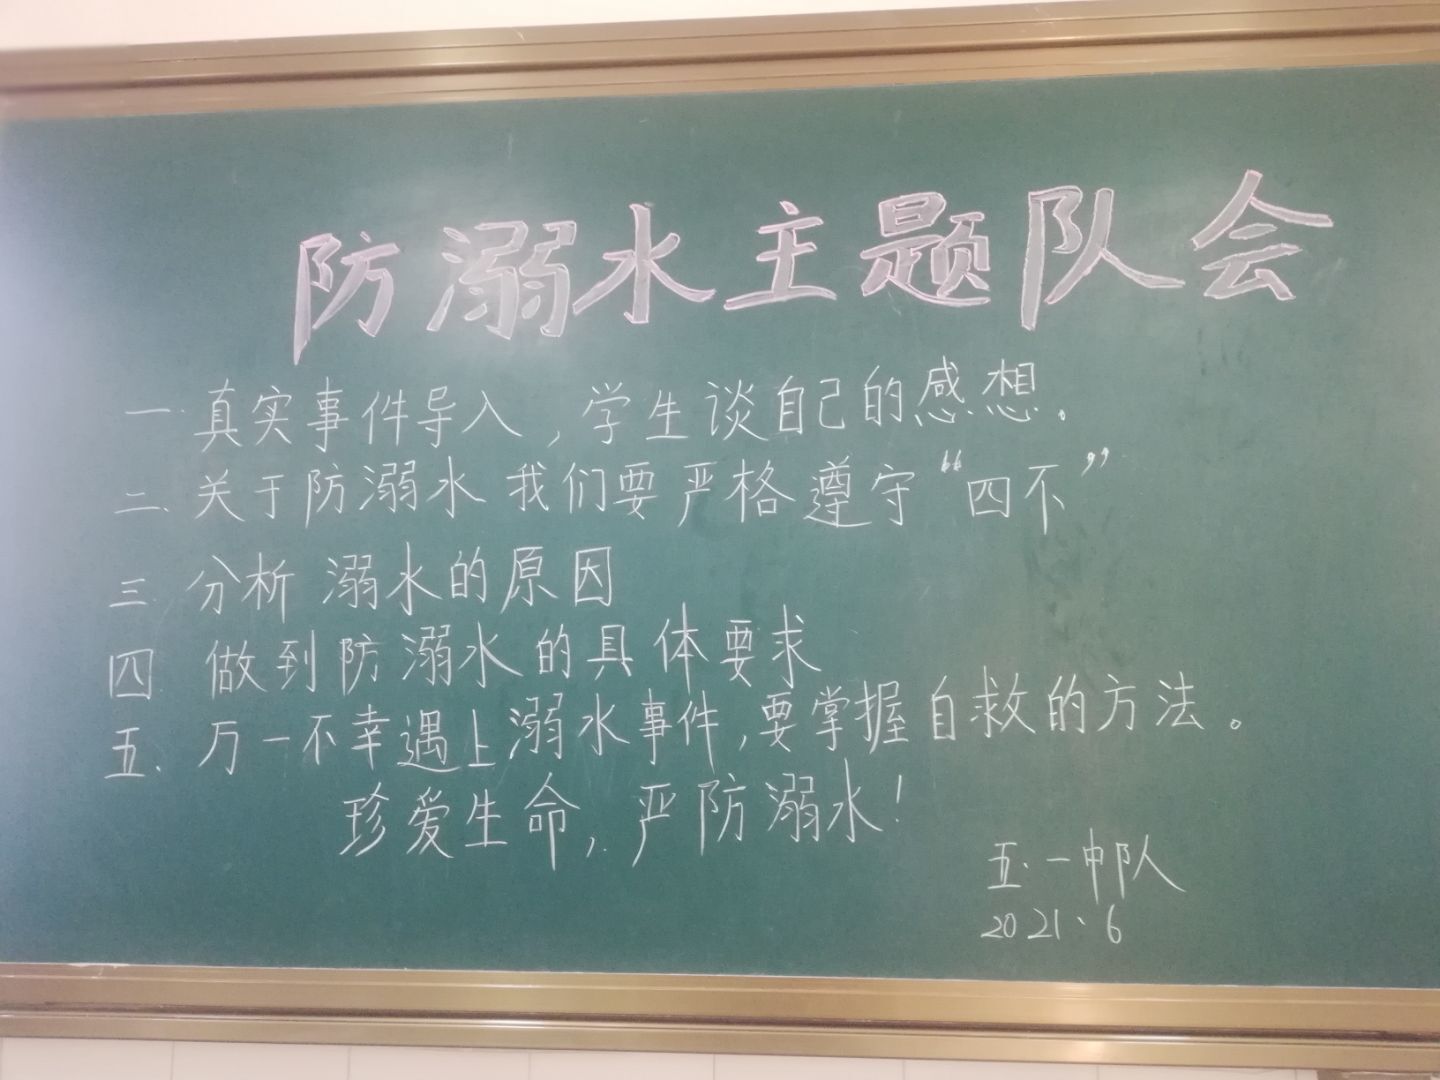 防溺水主题队会
一.真实事件导入,学生谈自己的感想。
二.关于防溺水我们要严格遵守“四不”
三.分析溺水的原因
四.做到防溺水的具体要求
五.万一不幸遇上溺水事件,要掌握自救的方法。
珍爱生命,严防溺水!
五.一中队
2021.6